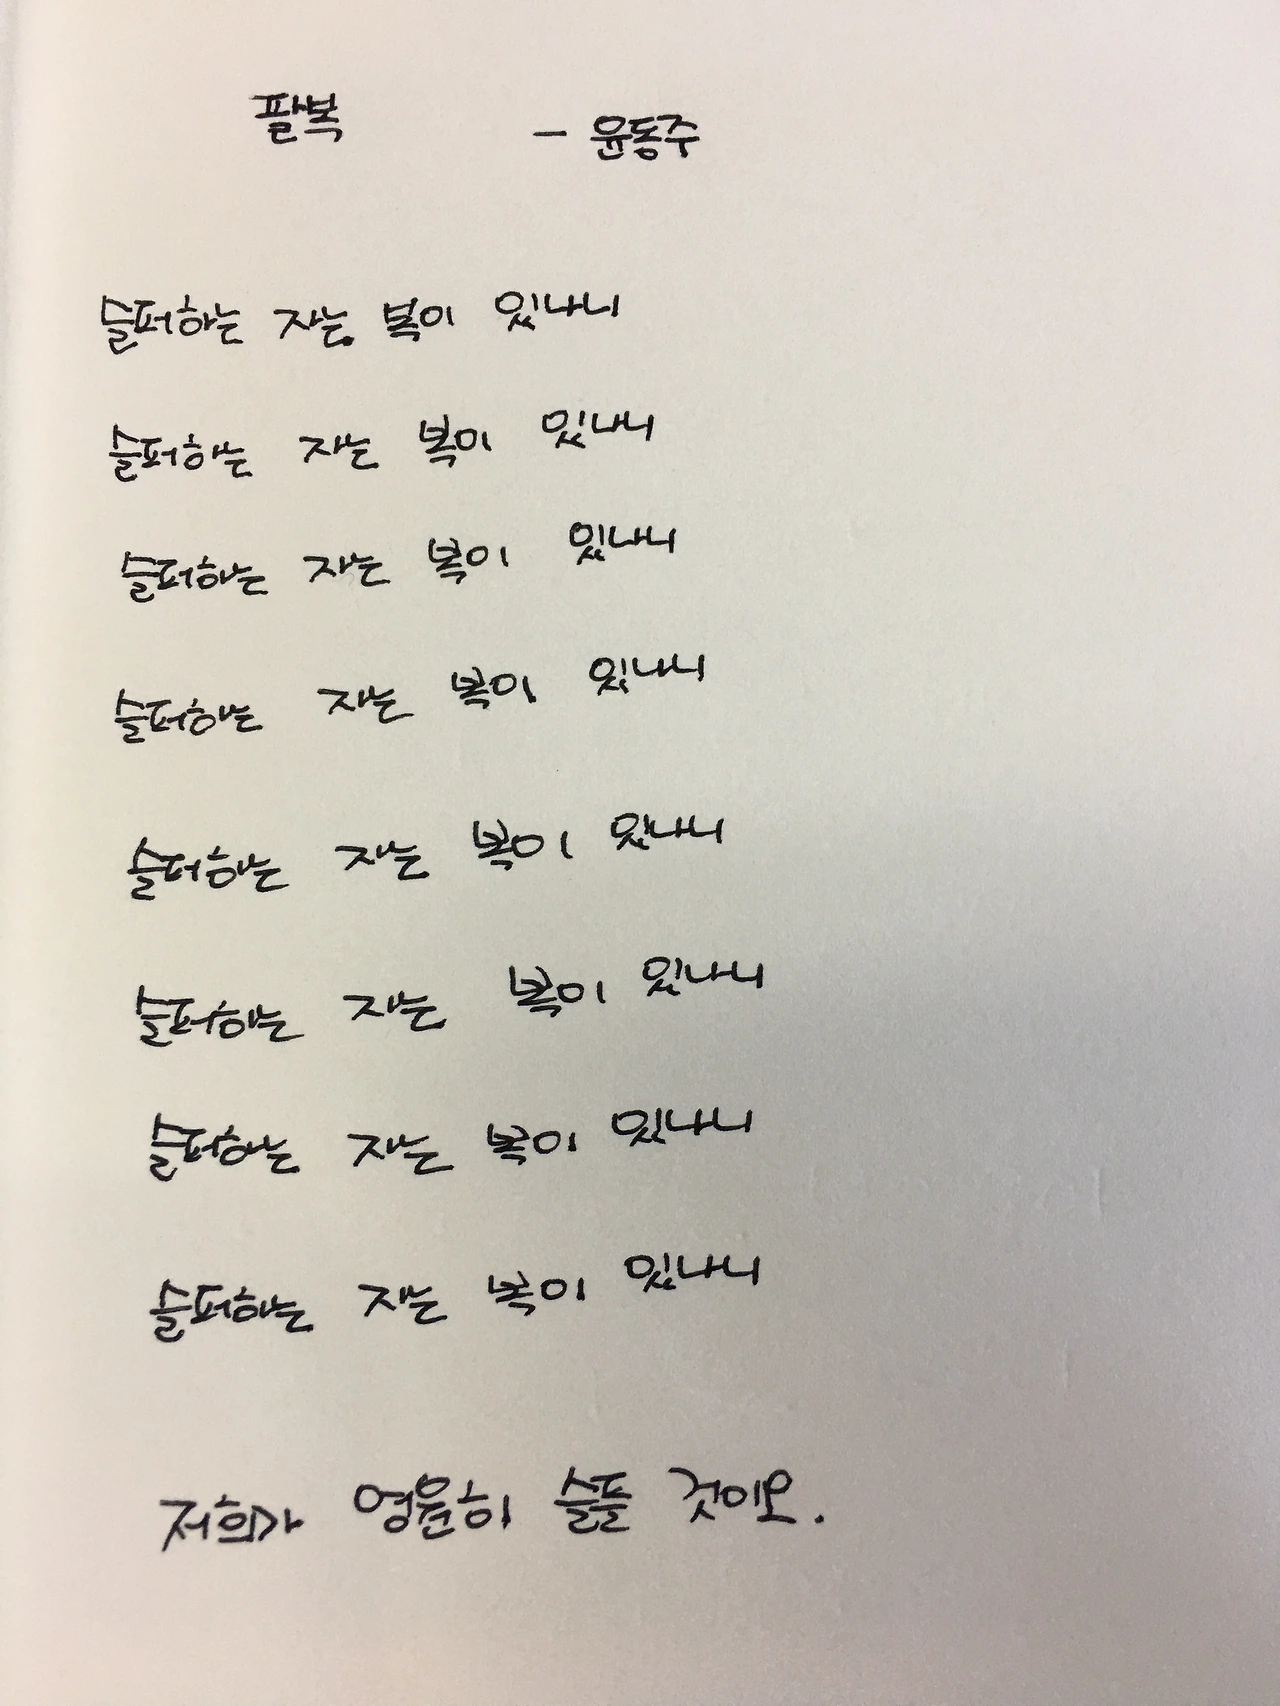 팔복 - 윤동주
슬퍼하는 자는 복이 있나니
슬퍼하는 자는 복이 있나니
슬퍼하는 자는 복이 있나니
슬퍼하는 자는 복이 있나니
슬퍼하는 자는 복이 있나니
슬퍼하는 자는 복이 있나니
슬퍼하는 자는 복이 있나니
슬퍼하는 자는 복이 있나니
저희가 영원히 슬플 것이오.